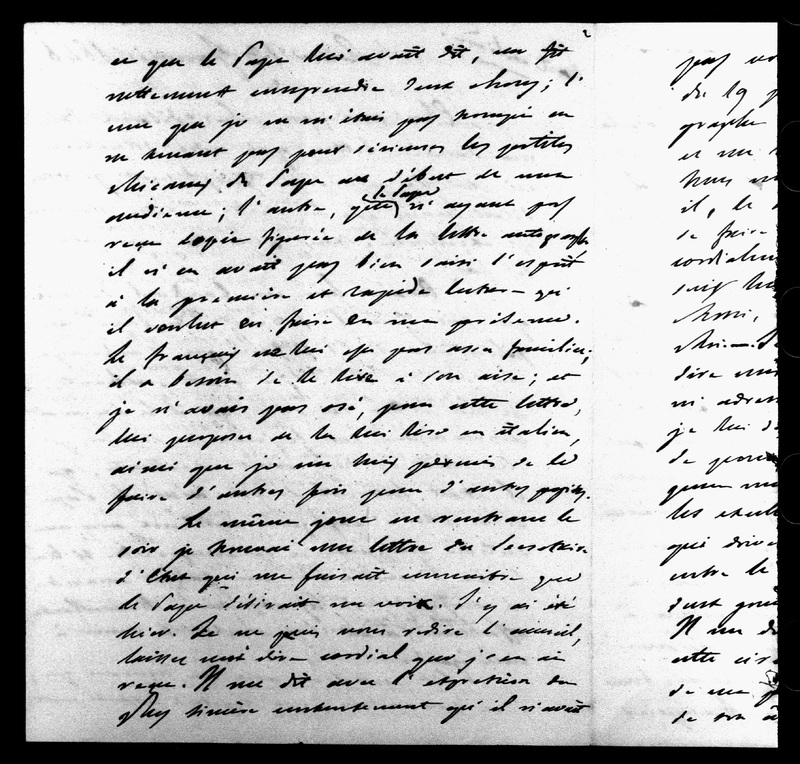 2
ce que le Pape lui avait dit, me fit
nettement comprendre deux choses; l'
une que je ne m'étais pas trompé en
ne tenant pas pour sérieuses les petites
chicanes du Pape au début de mon
audience; l'autre, que le Pape n'ayant pas
reçu copie figurée de la lettre autographe
il n'en avait pas bien saisi l'esprit
à la première et rapide lecture qu'
il voulut en faire en ma présence.
Le français ne lui est pas assez familier;
il a besoin de le lire à son aise; et
je n'avais pas osé, pour cette lettre,
lui proposer de la lui lire en italien,
ainsi que je me suis permis de le
faire d'autres fois pour d'autres papiers.
Le même jour en rentrant le
soir je trouvai une lettre du Secrétaire
d'Etat qui me faisait connaitre que
le Pape désirait me voir. J'y ai été
hier. Je ne puis vous redire l'accueil,
laissez moi dire cordial que j'en ai
reçu. Il me dit avec l'expression du
plus sincère contentement qu'il n'avait
pas
du 19
graphe
et me
il, le
se faire
dire
je lui
de
les
qui
entre le
Il me
cette
de me
de son